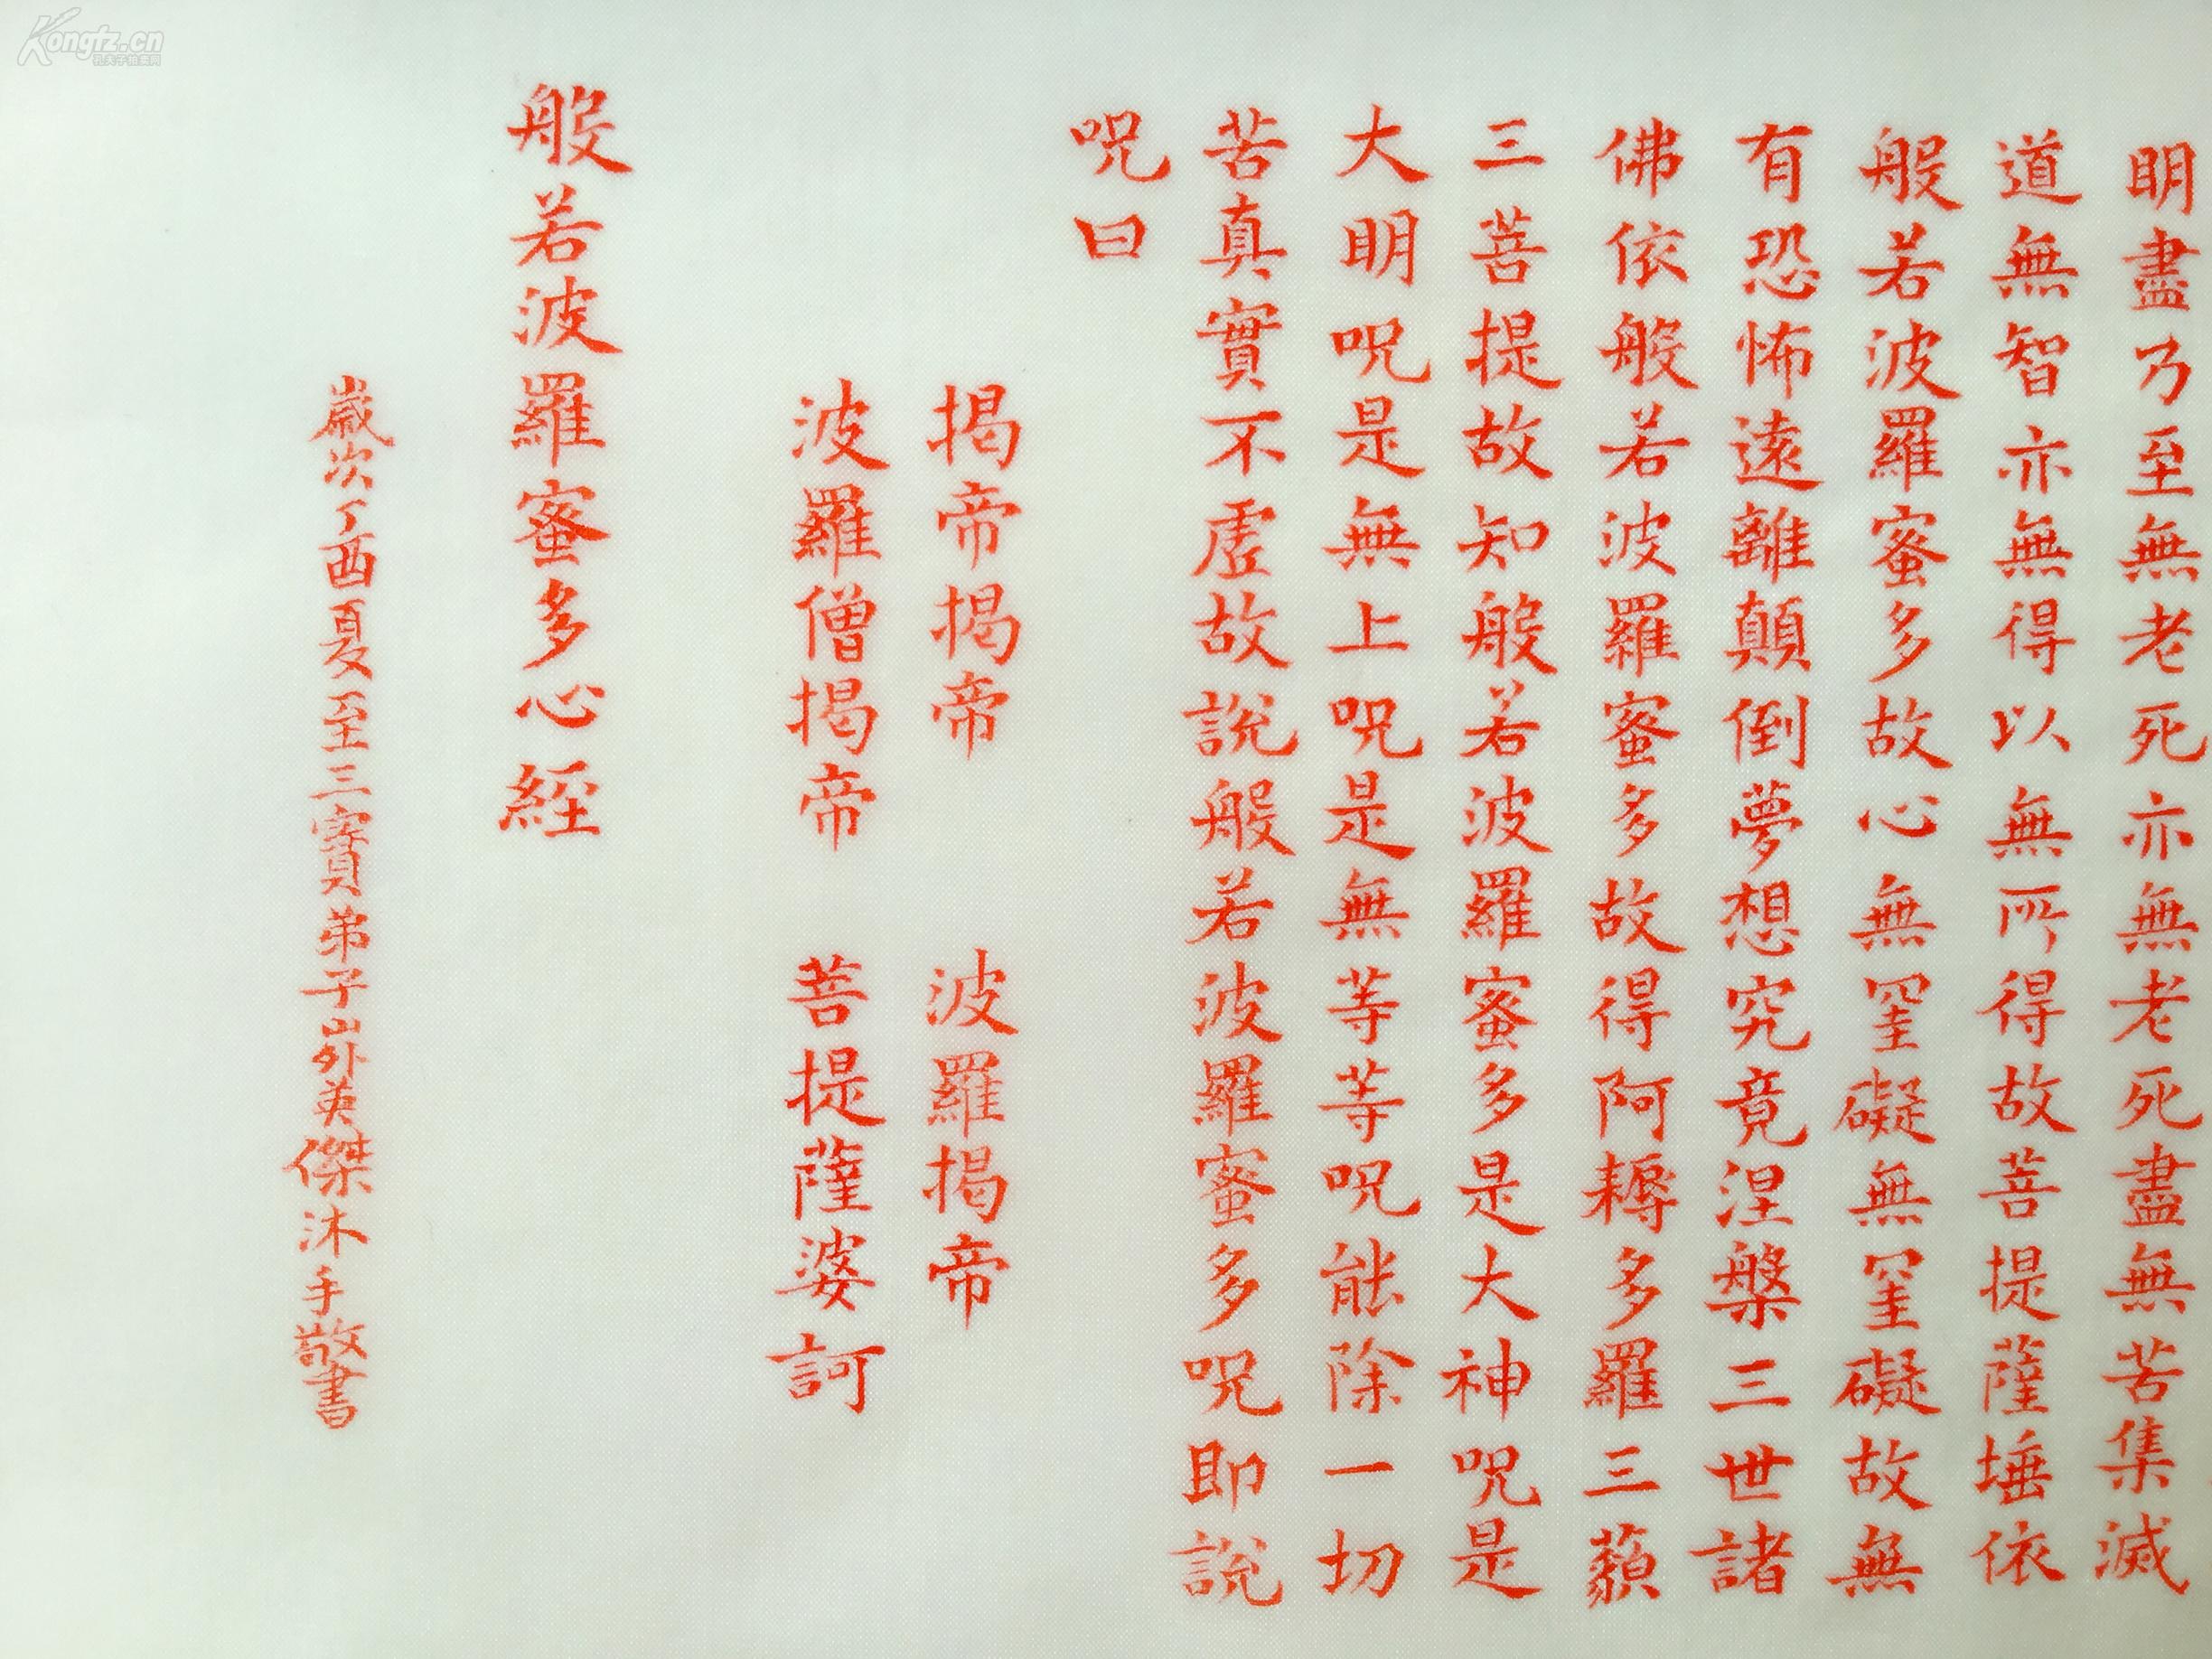 明盡乃至無老死亦無老死盡無苦集滅
道無智亦無得以無所得故菩提薩埵依
般若波羅蜜多故心無罣礙無罣礙故無
有恐怖遠離顛倒夢想究竟涅槃三世諸
佛依般若波羅蜜多故得阿耨多羅三藐
三菩提故知般若波羅蜜多是大神咒是
大明咒是無上咒是無等等咒能除一切
苦真實不虛故說般若波羅蜜多咒即說
咒曰
揭帝揭帝 波羅揭帝
波羅僧揭帝 菩提薩婆訶
般若波羅蜜多心經
歲次丁酉夏至三寶弟子山外英傑沐手敬書
Kongfz.cn
孔夫子拍卖网